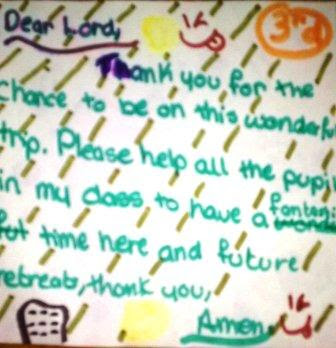 Dear Lord,
3rd
Thank you for the
chance to be on this wonderf
trip. Please help all the pupi
in my class to have a fantas
time here and future
retreats, thank you,
Amen.